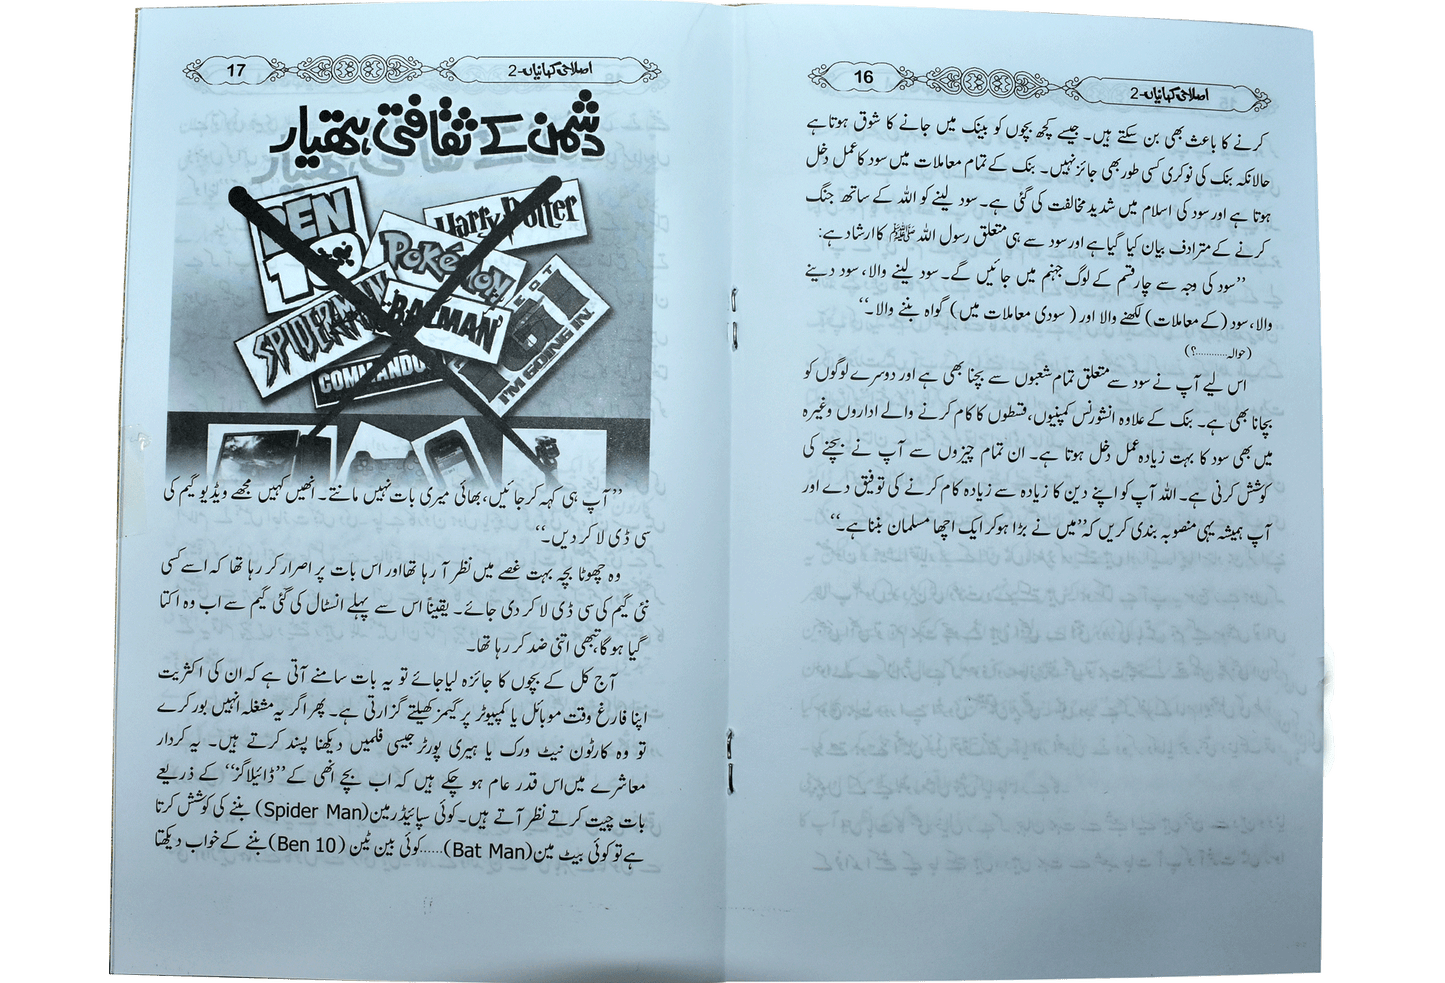 16
اصلاحی کہانیاں-2
کرنے کا باعث بھی بن سکتے ہیں۔ جیسے کچھ بچوں کو بینک میں جانے کا شوق ہوتا ہے
حالانکہ بنک کی نوکری کسی طور بھی جائز نہیں۔ بنک کے تمام معاملات میں سود کا عمل دخل
ہوتا ہے اور سود کی اسلام میں شدید مخالفت کی گئی ہے۔ سود لینے کو اللہ کے ساتھ جنگ
کرنے کے مترادف بیان کیا گیا ہے اور سود سے ہی متعلق رسول اللہ ﷺ کا ارشاد ہے:
’’سود کی وجہ سے چار قسم کے لوگ جہنم میں جائیں گے۔ سود لینے والا، سود دینے
والا، سود (کے معاملات) لکھنے والا اور (سودی معاملات میں) گواہ بننے والا۔‘‘
(حوالہ............؟)
اس لیے آپ نے سود سے متعلق تمام شعبوں سے بچنا بھی ہے اور دوسرے لوگوں کو
بچانا بھی ہے۔ بنک کے علاوہ انشورنس کمپنیوں، قسطوں کا کام کرنے والے اداروں وغیرہ
میں بھی سود کا بہت زیادہ عمل دخل ہوتا ہے۔ ان تمام چیزوں سے آپ نے بچنے کی
کوشش کرنی ہے۔ اللہ آپ کو اپنے دین کا زیادہ سے زیادہ کام کرنے کی توفیق دے اور
آپ ہمیشہ یہی منصوبہ بندی کریں کہ ’’میں نے بڑا ہو کر ایک اچھا مسلمان بننا ہے۔‘‘
17
اصلاحی کہانیاں-2
دشمن کے ثقافتی ہتھیار
BEN
10
Harry Potter
POKéMON
SPIDERMAN
BATMAN
COMMANDO
I'M GOING IN.
’’آپ ہی کہہ کر جائیں، بھائی میری بات نہیں مانتے۔ انھیں کہیں مجھے ویڈیو گیم کی
سی ڈی لا کر دیں۔‘‘
وہ چھوٹا بچہ بہت غصے میں نظر آ رہا تھا اور اس بات پر اصرار کر رہا تھا کہ اسے کسی
نئی گیم کی سی ڈی لا کر دی جائے۔ یقیناً اس سے پہلے انسٹال کی گئی گیم سے اب وہ اکتا
گیا ہو گا، تبھی اتنی ضد کر رہا تھا۔
آج کل کے بچوں کا جائزہ لیا جائے تو یہ بات سامنے آتی ہے کہ ان کی اکثریت
اپنا فارغ وقت موبائل یا کمپیوٹر پر گیمز کھیلتے گزارتی ہے۔ پھر اگر یہ مشغلہ انہیں بور کرے
تو وہ کارٹون نیٹ ورک یا ہیری پورٹر جیسی فلمیں دیکھنا پسند کرتے ہیں۔ یہ کردار
معاشرے میں اس قدر عام ہو چکے ہیں کہ اب بچے انھی کے ’’ڈائیلاگز‘‘ کے ذریعے
بات چیت کرتے نظر آتے ہیں۔ کوئی سپائیڈرمین (Spider Man) بننے کی کوشش کرتا
ہے تو کوئی بیٹ مین (Bat Man)......کوئی بین ٹین (Ben 10) بننے کے خواب دیکھتا